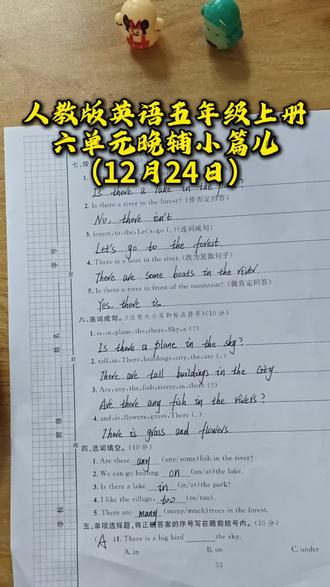 人教版英语五年级上册
六单元晚辅小篇儿
(12月24日)
七、按
Is there a lake in the
2. Is there a river in the forest? (作否定回答)
No, there isn't.
3. forest, to, the, Let's, go (.) (连词成句)
Let's go to the forest.
4. There is a boat in the river. (改为复数句子)
There are some boats in the river.
5. Is there a river in front of the mountain? (做肯定回答)
Yes, there is.
八、连词成句。(注意大小写和标点符号)(10分)
1. is, in, plane, the, there, Sky, a (?)
Is there a plane in the sky?
2. tall, in, There, buildings, city, the, are (.)
There are tall buildings in the city.
3. Are, any, the, fish, rivers, in, there (?)
Are there any fish in the rivers?
4. and, is, flowers, grass, There (.)
There is grass and flowers.
四、选词填空。(10分)
1. Are there any (any/some) fish in the river?
2. We can go boating on (on/at) the lake.
3. Is there a lake in (in/at) the park?
4. I like the village, too (to/too).
5. There are many (many/much) trees in the forest.
五、单项选择题,将正确答案的序号写在题前括号内。(10分)
(A) 1. There is a big bird ____ the sky.
A. in B. on C. under
53
学校
班级
姓名
学号